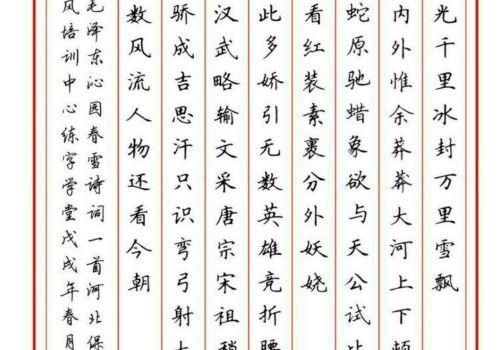 光千里冰封万里雪飘
内外惟余莽莽大河上下顿
蛇原驰蜡象欲与天公试比
看红装素裹分外妖娆
此多娇引无数英雄竞折腰
汉武略输文采唐宗宋祖稍
骄成吉思汗只识弯弓射大
数风流人物还看今朝
毛泽东沁园春雪诗词一首河北保
风培训中心练字学堂戊戌年春月